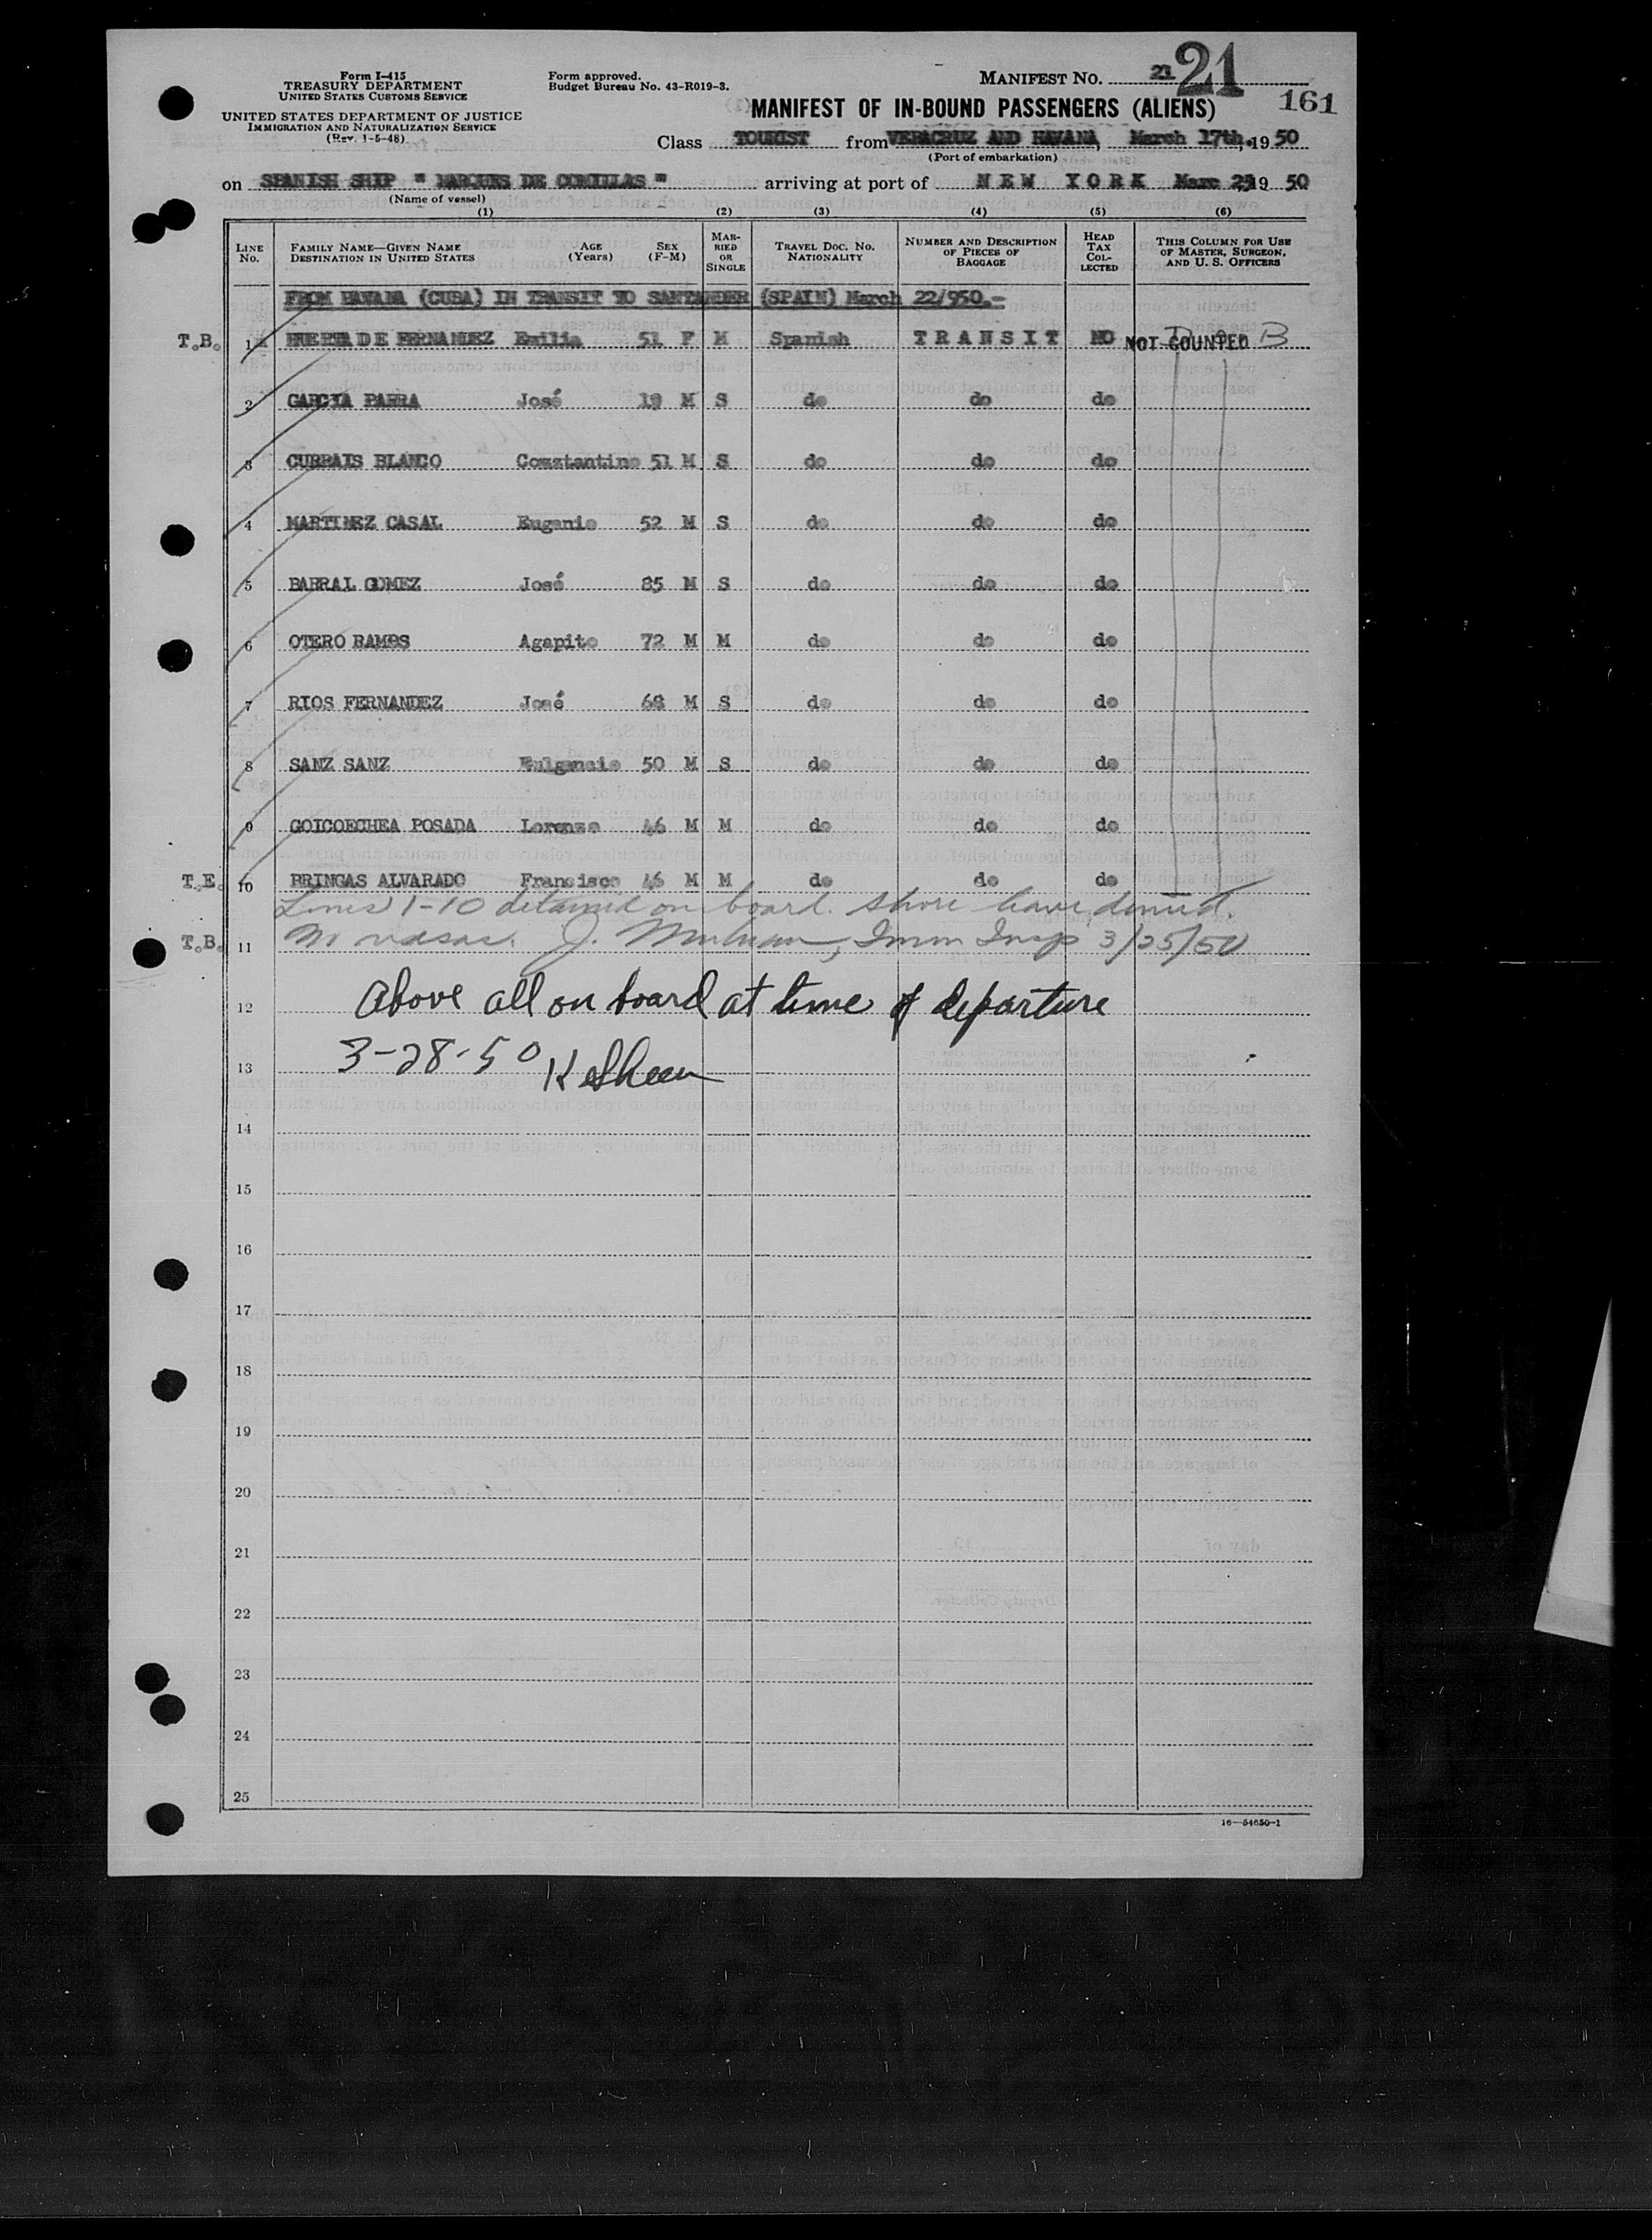 Form I-415
TREASURY DEPARTMENT
UNITED STATES CUSTOMS SERVICE
UNITED STATES DEPARTMENT OF JUSTICE
IMMIGRATION AND NATURALIZATION SERVICE
(Rev. 1-5-48)
Form approved.
Budget Bureau No. 43-R019-3.
MANIFEST NO. 21 21
161
MANIFEST OF IN-BOUND PASSENGERS (ALIENS)
Class TOURIST from VERACRUZ AND HAVANA, March 17th., 19 50
(Port of embarkation)
on SPANISH SHIP " MARQUES DE COMILLAS " arriving at port of NEW YORK Marc 25 19 50
(Name of vessel)
(1) (2) (3) (4) (5) (6)
LINE No. FAMILY NAME—GIVEN NAME DESTINATION IN UNITED STATES AGE (Years) SEX (F-M) MARRIED OR SINGLE TRAVEL DOC. NO. NATIONALITY NUMBER AND DESCRIPTION OF PIECES OF BAGGAGE HEAD TAX COLLECTED THIS COLUMN FOR USE OF MASTER, SURGEON, AND U. S. OFFICERS
FROM HAVANA (CUBA) IN TRANSIT TO SANTANDER (SPAIN) March 22/950.-
T.B. 1 HUERTA DE FERNANDEZ Emilia 51 F M Spanish TRANSIT NO NOT COUNTED
2 GARCIA PARRA José 19 M S do do do
3 CURRAIS BLANCO Comztantino 51 M S do do do
4 MARTINEZ CASAL Eugenio 52 M S do do do
5 BARRAL GOMEZ José 85 M S do do do
6 OTERO RAMOS Agapito 72 M M do do do
7 RIOS FERNANDEZ José 68 M S do do do
8 SANZ SANZ Fulgencio 50 M S do do do
9 GOICOECHEA POSADA Lorenzo 46 M M do do do
T.E. 10 BRINGAS ALVARADO Francisco 46 M M do do do
Lines 1-10 detained on board. Shore leave denied.
T.B. 11 No visas. J. Imm Insp 3/25/50
12 Above all on board at time of departure
13 3-28-50
14
15
16
17
18
19
20
21
22
23
24
25
16—54650-1